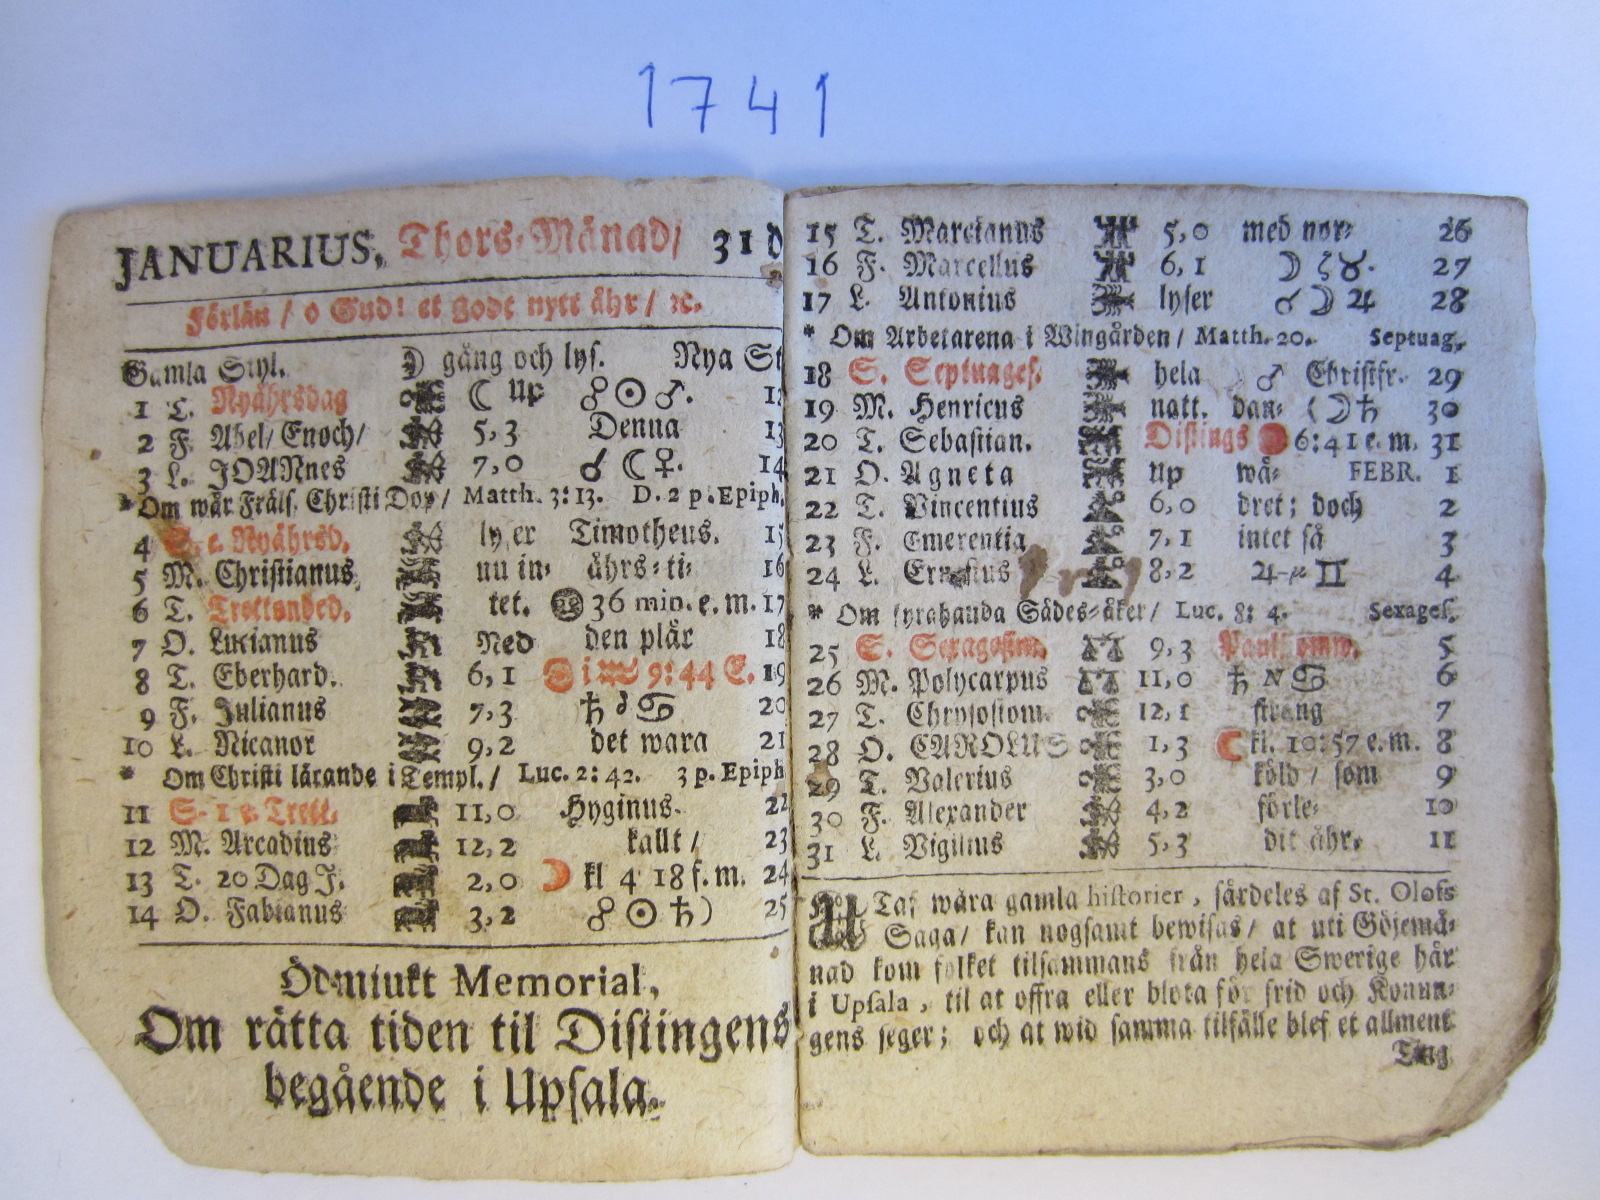 1741
JANUARIUS, Thors-Månad/ 31 d
Förlän / o Gud! et godt nytt åhr / ꝛc.
Gamla Styl. ☽ gång och lys. Nya St
1 T. Nyåhrsdag ☾ up ☍ ☉ ♂. 12
2 F. Abel/ Enoch/ 5,3 Denna 13
3 L. JOANnes 7,0 ☌ ☾ ♀. 14
* Om wår Frälſ. Chriſti Dop/ Matth. 3: 13. D. 2 p. Epiph.
4 S. e. Nyåhrsd. lyſer Timotheus. 15
5 M. Chriſtianus, nu in- åhrs-ti- 16
6 T. Trettonded. tet. 36 min. e. m. 17
7 O. Lucianus Ned den plår 18
8 T. Eberhard. 6,1 i ♒ 9:44 E. 19
9 F. Julianus 7,3 ♄ ☌ ♋ 20
10 L. Nicanor 9,2 det wara 21
* Om Chriſti lärande i Templ./ Luc. 2: 42. 3 p. Epiph
11 S. 1 e. Trett. 11,0 Hyginus. 22
12 M. Arcadius 12,2 kallt / 23
13 T. 20 Dag J. 2,0 ☽ kl 4 18 f. m. 24
14 O. Fabianus 3,2 ☍ ☉ ♄ ) 25
Ödmiukt Memorial,
Om rätta tiden til Diſtingens
begående i Upſala.
15 T. Marcianus 5,0 med nor- 26
16 F. Marcellus 6,1 ☽ ☋ ♉. 27
17 L. Antonius lyſer ☌ ☽ ♃ 28
* Om Arbetarena i Wingården / Matth. 20. Septuag.
18 S. Septuageſ. hela ♂ Chriſtfr. 29
19 M. Henricus natt. dan- ( ☽ ♄ 30
20 T. Sebaſtian. Diſtings 6:41 e. m. 31
21 O. Agneta up wä- FEBR. 1
22 T. Vincentius 6,0 dret; doch 2
23 F. Emerentia 7,1 intet ſå 3
24 L. Erneſtus 8,2 ♃ ♊ 4
* Om fyrahanda Sädes-åker / Luc. 8: 4. Sexageſ.
25 S. Sexageſim. 9,3 Pauli omw. 5
26 M. Polycarpus 11,0 ♄ N ♋ 6
27 T. Chryſoſtom. 12,1 ſträng 7
28 O. CAROLUS 1,3 ☾ kl. 10:57 e. m. 8
29 T. Valerius 3,0 köld / ſom 9
30 F. Alexander 4,2 förle- 10
31 L. Vigilius 5,3 dit åhr. 11
UTaf wåra gamla hiſtorier, ſärdeles af St. Olofs
Saga/ kan nogſamt bewiſas/ at uti Göjemå-
nad kom folket tilſammans från hela Swerige här
i Upſala, til at offra eller blota för frid och Konun-
gens ſeger; och at wid ſamma tilfälle blef et allment
Ting